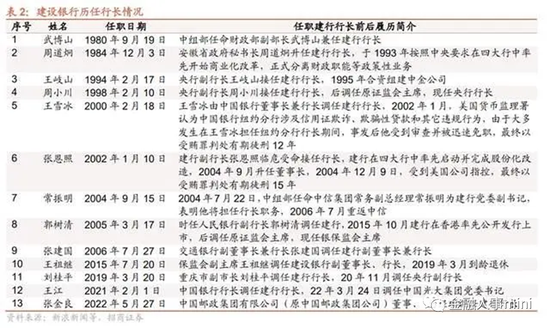 表 2：建设银行历任行长情况
序号 姓名 任职日期 任职建行行长前后履历简介
1 武博山 1980 年 9 月 19 日 中组部任命财政部副部长武博山兼任建行行长
2 周道炯 1984 年 12 月 3 日 安徽省政府秘书长周道炯升任建行行长，于 1993 年按照中央要求在四大行中率
先开始商业化改革，正式分离财政职能等政策性业务
3 王岐山 1994 年 2 月 17 日 央行副行长王岐山接任建行行长，1995 年合资组建中金公司
4 周小川 1998 年 2 月 10 日 央行副行长周小川接任建行行长，后调任原证监会主席，现任央行行长
5 王雪冰 2000 年 2 月 18 日 王雪冰由中国银行董事长兼行长调任建行行长，2002 年 1 月，美国货币监理署
认为中国银行纽约分行涉及信用证欺诈、欺骗性贷款和其它违规行为，由于大多
发生在王雪冰担任纽约分行行长期间，事发后他受到审查并被迅速免职，最终以
受贿罪判处有期徒刑 12 年
6 张恩照 2002 年 1 月 10 日 建行副行长张恩照临危受命接任行长，建行在四大行中率先启动并完成股份化改
造，2004 年 9 月升任董事长，2004 年 12 月 9 日，受到美国公司指控，最终以
受贿罪判处有期徒刑 15 年
7 常振明 2004 年 7 月 20 日 2004 年 7 月 22 日，中组部任命中信集团常务副总经理常振明为建行党委副书记，
表明他将担任行长职务，2006 年 7 月重返中信
8 郭树清 2005 年 3 月 17 日 时任人民银行副行长郭树清调任建行，2015 年 10 月建行在香港率先公开发行上
市，后调任原证监会主席，现任银保监会主席
9 张建国 2006 年 7 月 27 日 交通银行副董事长兼行长张建国任建行副董事长兼行长
10 王祖继 2015 年 7 月 20 日 保监会副主席王祖继调任建设银行副董事长、行长，2019 年 3 月到龄退休
11 刘桂平 2019 年 3 月 20 日 重庆市副市长刘桂平调任建行行长，20 年 11 月调央行副行长
12 王江 2021 年 2 月 1 日 中国银行行长调任建行行长，22 年 3 月 24 日调任中国光大集团党委书记
13 张金良 2022 年 5 月 27 日 中国邮政集团有限公司（原中国邮政集团公司）董事、
资料来源：新浪新闻等、招商证券
金融人事mini